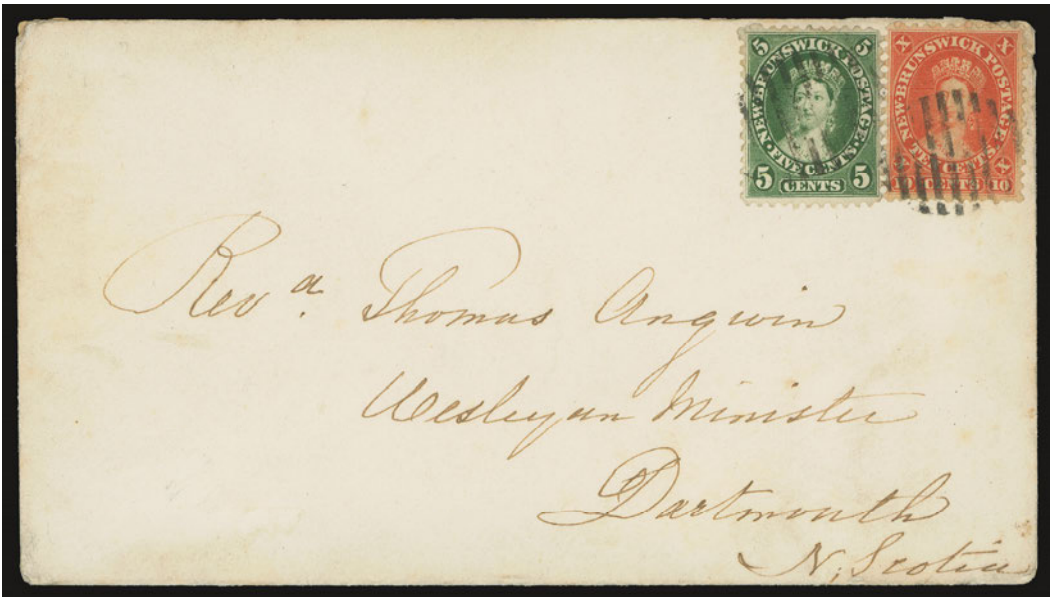 5 5
NEW·BRUNSWICK POSTAGE·
FIVE CENTS
5 CENTS 5
X X
NEW·BRUNSWICK POSTAGE
TEN CENTS
X
CENTS 10
Revd. Thomas Angwin
Wesleyan Minister
Dartmouth
N. Scotia